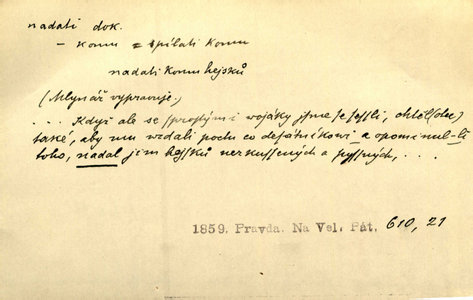 nadati dok.
– komu = spílati komu
nadati komu hejsků
(Mlynář vypravuje.)
. . . Když ale se sprostými wojáky jsme se sessli, chtěl (dec)
také, aby mu vzdali poctu co desátníkowi a opominul-li
toho, nadal jim hejsků nezkussených a pyssných, . . .
1859. Pravda. Na Vel. Pát. 610, 21